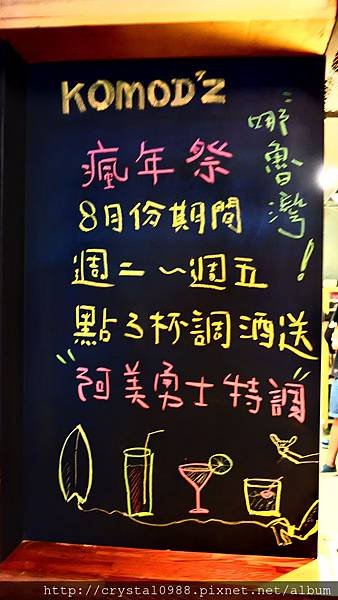 KOMOD'Z
哪魯灣！
瘋年祭
8月份期間
週二～週五
點3杯調酒送
"阿美勇士特調"
http://crystal0988.pixnet.net/album